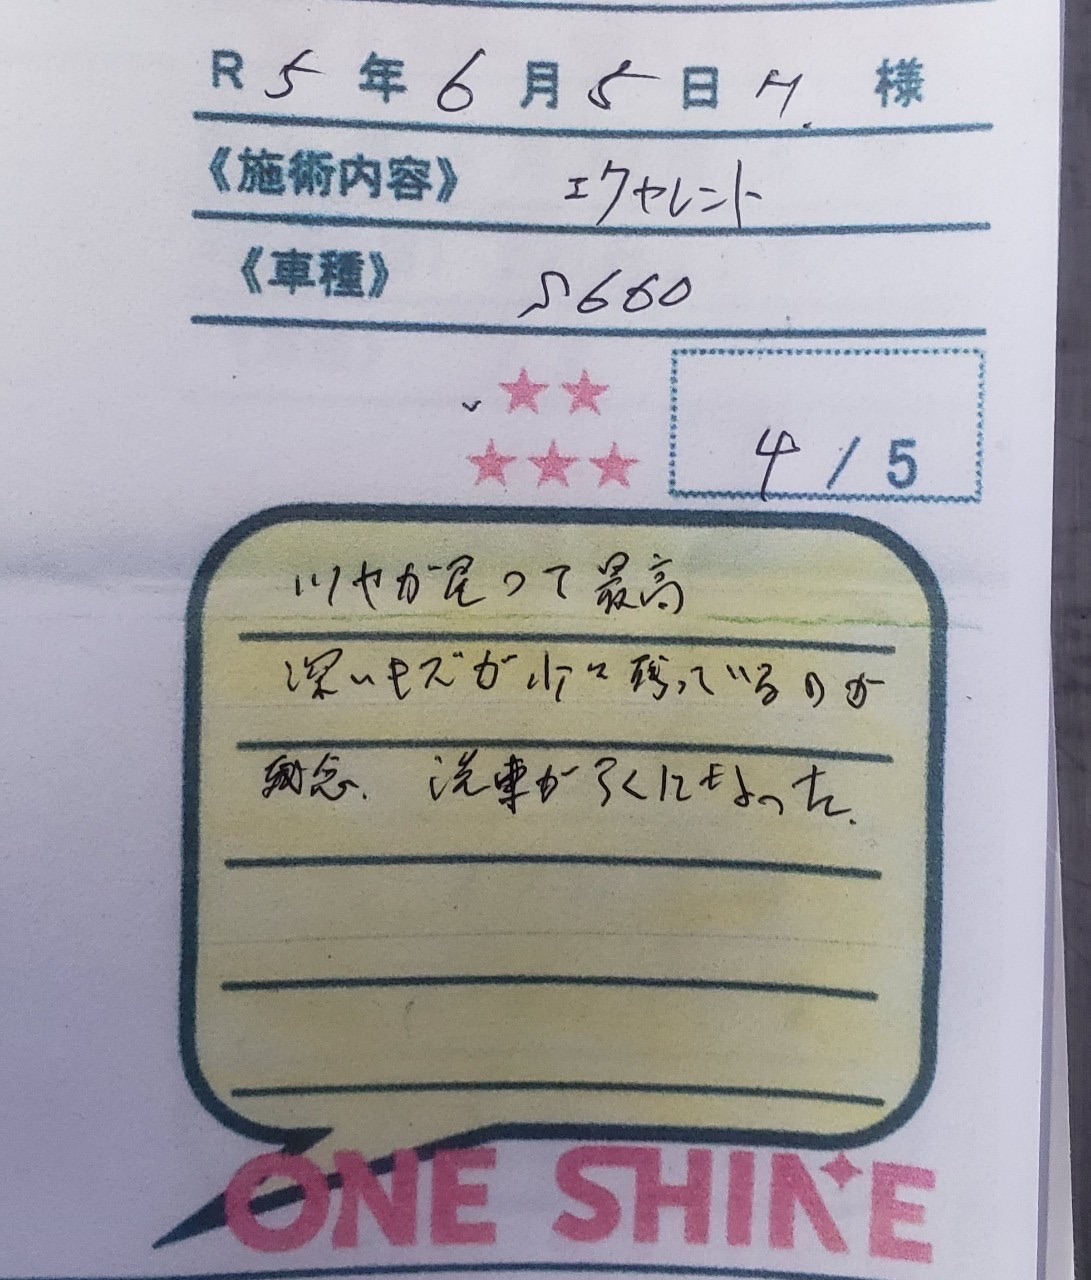 R 5 年 6 月 5 日 H. 様
《施術内容》 エクセレント
《車種》 S660
4 / 5
ツヤが出って最高
深いキズが少々残っているのが
残念. 洗車がらくにもなった.
ONE SHINE